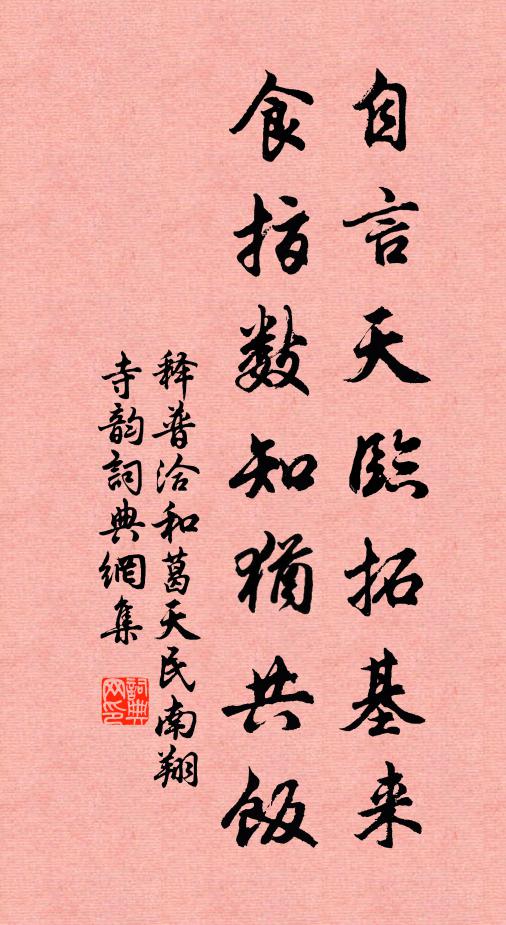 自言天临拓基来
食指数知犹共饭
释普洽和葛天民南翔
寺韵词典网集
词典网印